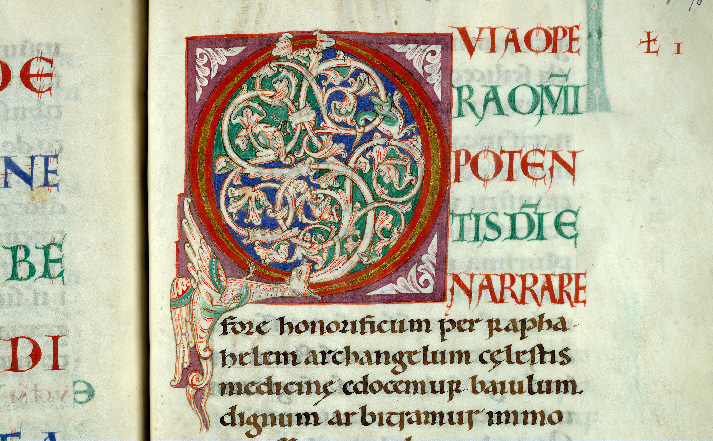 DE
NE
BE
DI
QVIA OPE
RA OM̄I
POTEN
TIS DN̄I E
NARRARE
fore honorificum per rapha-
helem archangelum cęlestis
medicinę edocemur baiulum.
dignum arbitramur immo
Ł I